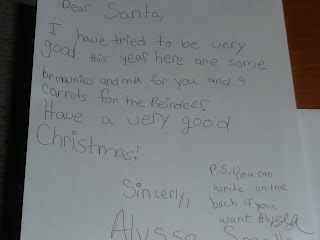 Dear Santa,
I have tried to be very
good this year here are some
brownies and milk for you and 9
carrots for the Reindeer.
Have a very good
Christmas!
Sincerly,
Alyssa
P.S. You can
write on the
back if you
want. Alyssa